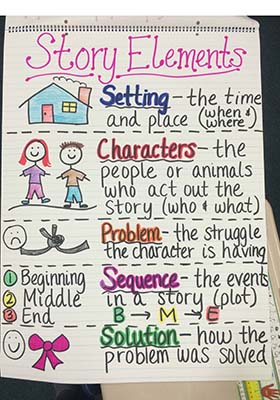 Story Elements
Setting - the time
and place (when & where)
Characters - the
people or animals
who act out the
story (who & what)
Problem - the struggle
the character is having
1 Beginning
2 Middle
3 End
Sequence - the events
in a story (plot)
B → M → E
Solution - how the
problem was solved